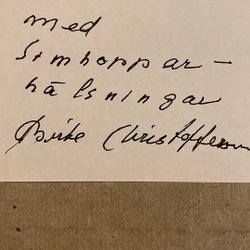 med
Simhoppar-
hälsningar
Christofferson